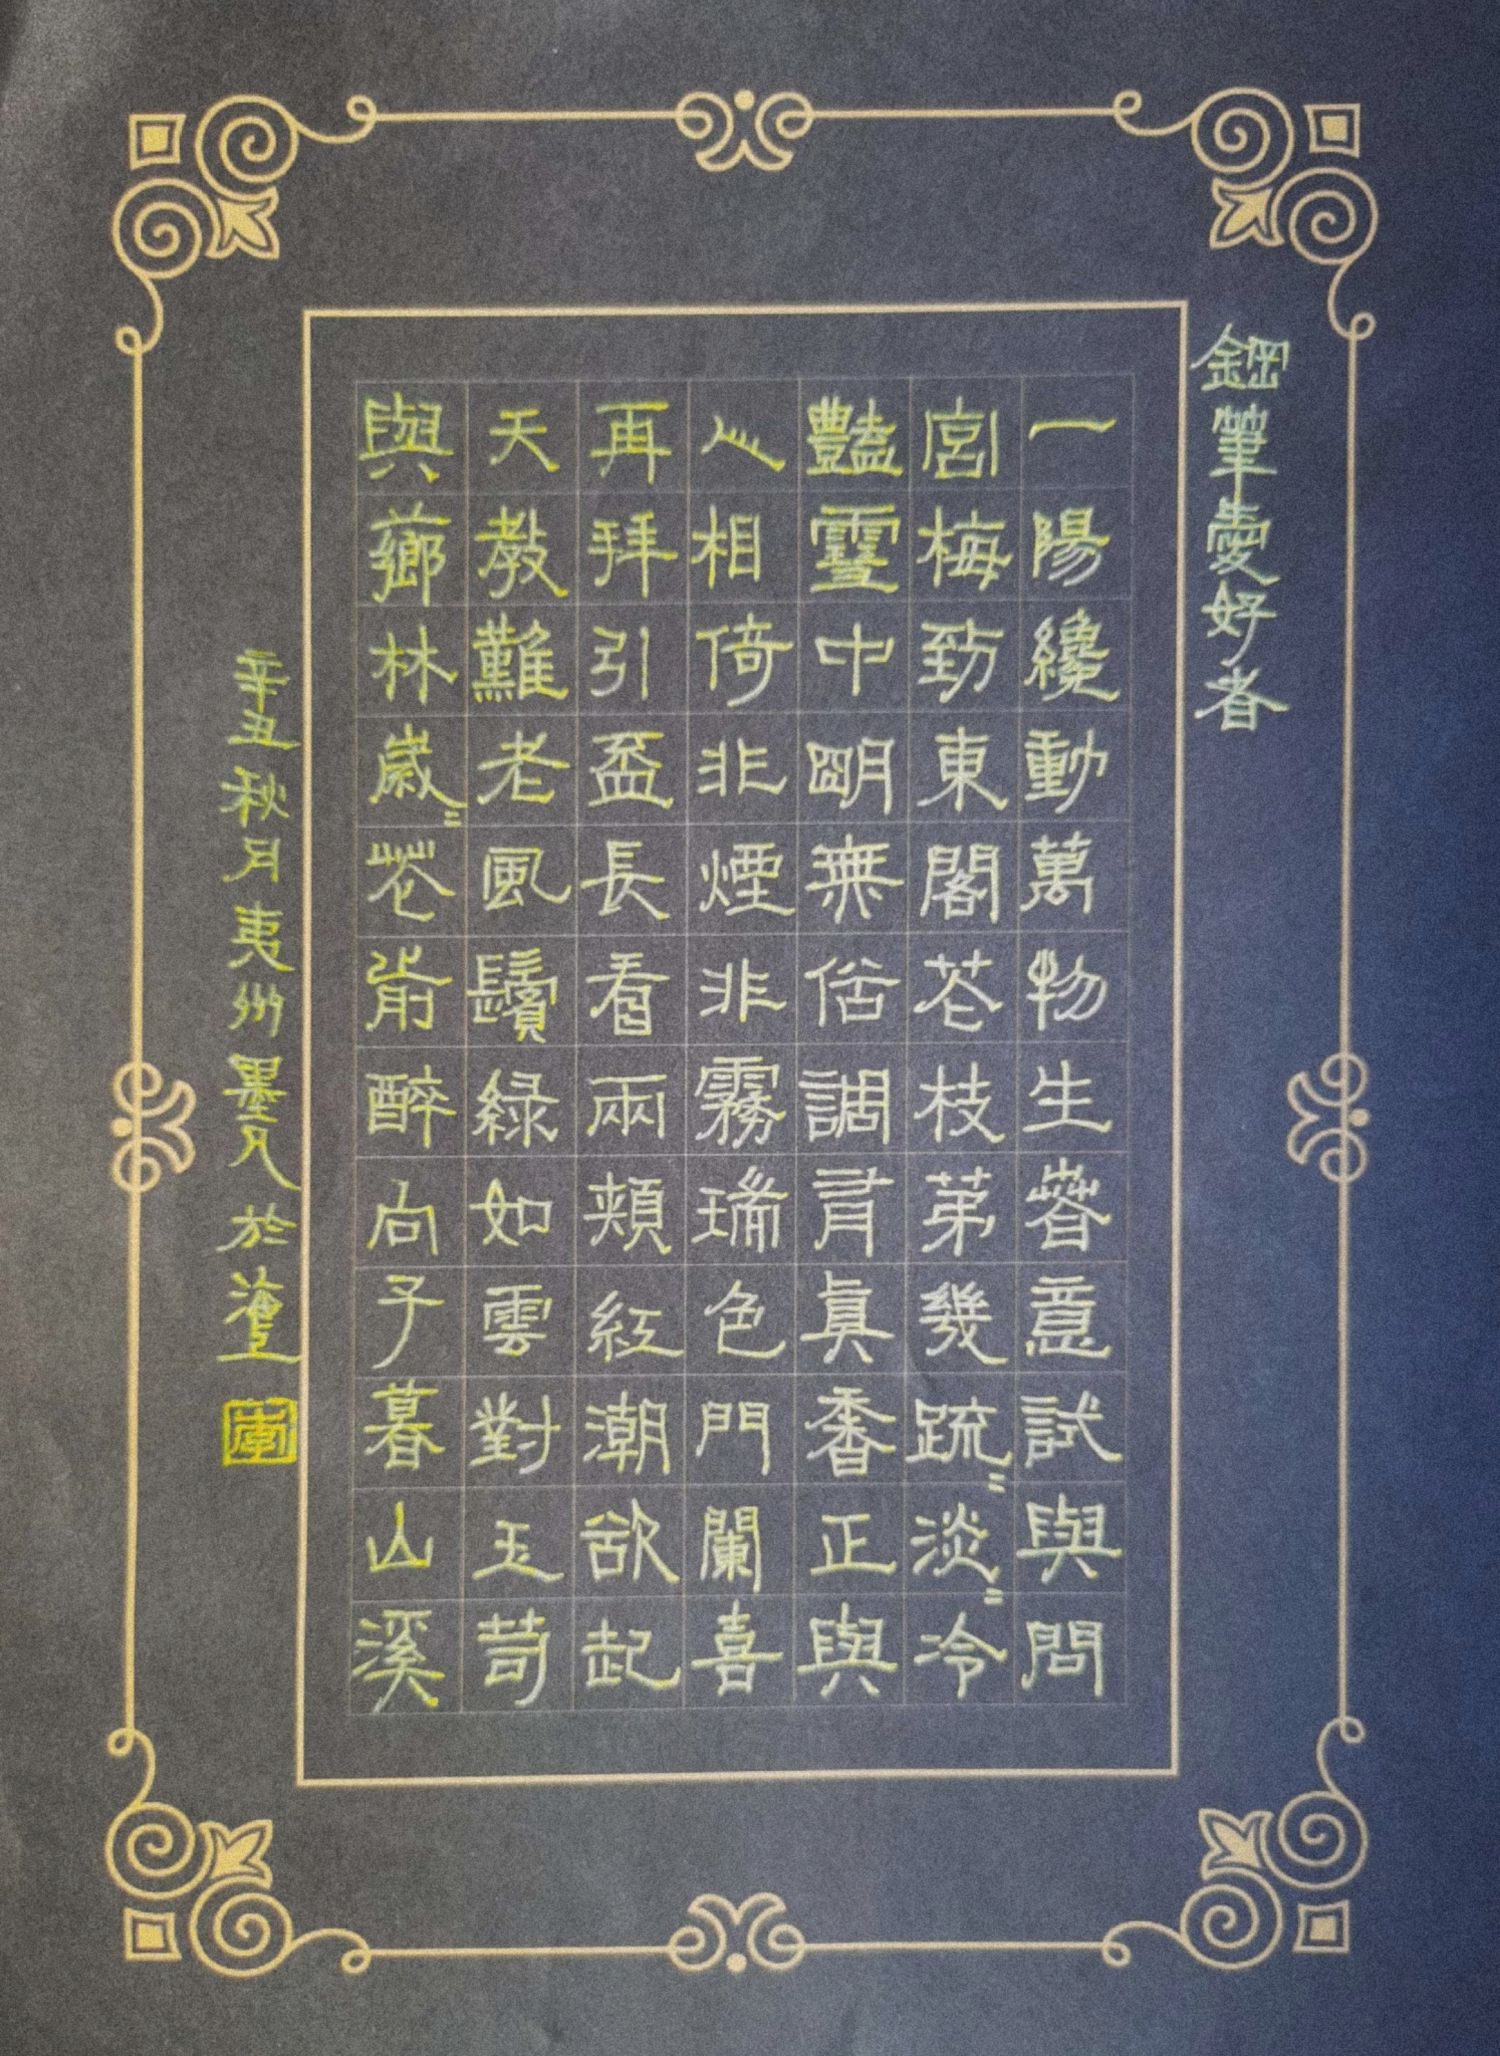 鋼筆愛好者
一陽纔動萬物生春意試與問
宮梅到東閣花枝第幾疏〻淡〻冷
豔雪中明無俗調有真香正與
人相倚非煙非霧瑞色門闌喜
再拜引盃長看兩頰紅潮欲起
天教難老風鬢綠如雲對玉笥
與薌林歲〻花前醉向子暮山溪
辛丑秋月夷州墨人於